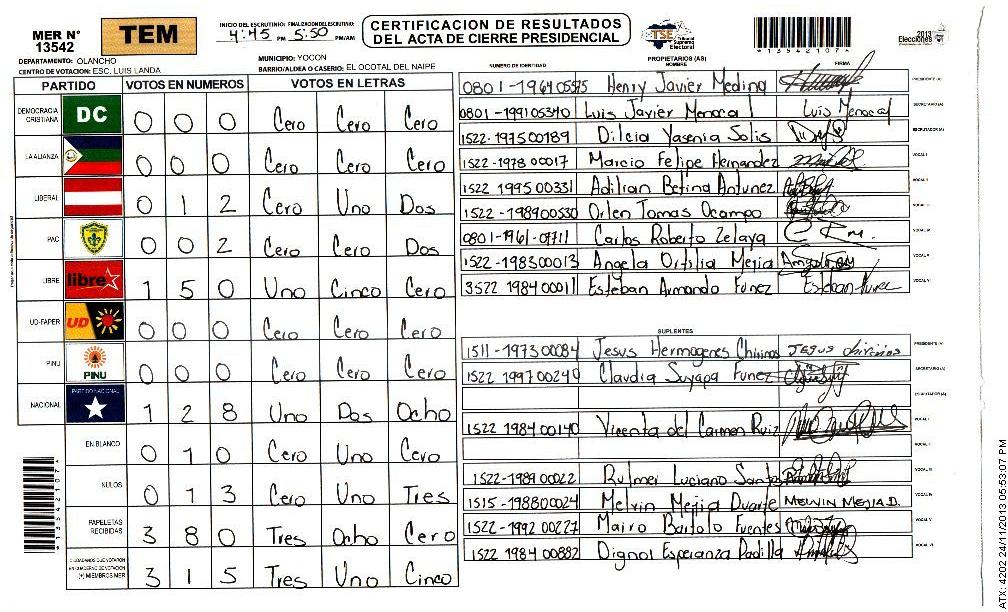 MER N° 13542
TEM
INICIO DEL ESCRUTINIO: 4:45 PM FINALIZACION DEL ESCRUTINIO: 5:50 PM/AM
CERTIFICACION DE RESULTADOS
DEL ACTA DE CIERRE PRESIDENCIAL
TSE Tribunal Supremo Electoral
*13542107*
2013 Elecciones
DEPARTAMENTO: OLANCHO
MUNICIPIO: YOCON
CENTRO DE VOTACION: ESC. LUIS LANDA
BARRIO/ALDEA O CASERIO: EL OCOTAL DEL NAIPE
PARTIDO VOTOS EN NUMEROS VOTOS EN LETRAS
DEMOCRACIA CRISTIANA DC 0 0 0 Cero Cero Cero
LA ALIANZA 0 0 0 Cero Cero Cero
LIBERAL 0 1 2 Cero Uno Dos
PAC 0 0 2 Cero Cero Dos
LIBRE libre 1 5 0 Uno Cinco Cero
UD-FAPER UD 0 0 0 Cero Cero Cero
PINU PINU 0 0 0 Cero Cero Cero
NACIONAL PARTIDO NACIONAL 1 2 8 Uno Dos Ocho
EN BLANCO 0 1 0 Cero Uno Cero
NULOS 0 1 3 Cero Uno Tres
PAPELETAS RECIBIDAS 3 8 0 Tres Ocho Cero
CIUDADANOS QUE VOTARON EN CUADERNO DE VOTACION (+) MIEMBROS MER 3 1 5 Tres Uno Cinco
PROPIETARIOS (AS)
NUMERO DE IDENTIDAD NOMBRE FIRMA
0801-196405575 Henry Javier Medina PRESIDENTE (A)
0801-199105340 Luis Javier Menocal Luis Menocal SECRETARIO (A)
1522-197500189 Dilcia Yasenia Solis ESCRUTADOR (A)
1522-1978 00017 Marcio Felipe Hernandez VOCAL I
1522 1995 00331 Adilian Betina Antunez VOCAL II
1522-198900530 Orlen Tomas Ocampo VOCAL III
0801-1961-07711 Carlos Roberto Zelaya VOCAL IV
1522-198300013 Angela Ortilia Mejia VOCAL V
3522 1984 00011 Esteban Armando Funez Esteban Funez VOCAL VI
SUPLENTES
1511-1973 00084 Jesus Hermogenes Chirinos JESUS chirinos PRESIDENTE (A)
1522 1997 00240 Claudia Suyapa Funez SECRETARIO (A)
ESCRUTADOR (A)
1522 1984 00140 Vicenta del Carmen Ruiz VOCAL I
VOCAL II
1522-1989 00022 Rulmer Luciano Santos VOCAL III
1515-198800024 Melvin Mejia Duarte MELVIN MEJIA D. VOCAL IV
1522-1992 00227 Mairo Bartolo Fuentes VOCAL V
1522 1984 00882 Dignol Esperanza Padilla VOCAL VI
*13542107*
ATX: 4202 24/11/2013 05:53:07 PM